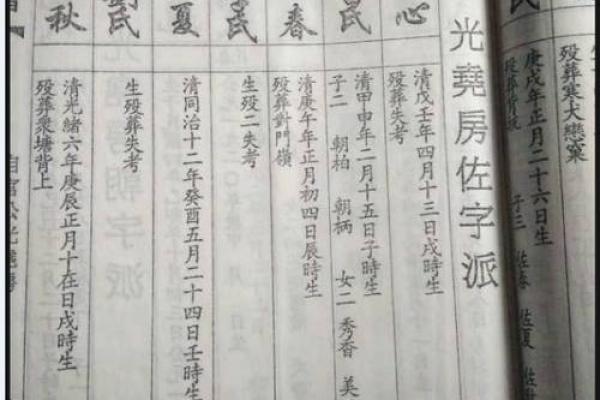 殁葬寒犬戀窠
民
庚戌年正月二十六日生
子三 佐春 佐夏
光堯房佐字派
心
清戊壬年四月十三日戌時生
殁葬失考
民
清甲申年二月十五日子時生
子二 朝柏 朝柄 女二 秀香 美
春
清庚午年正月初四日辰時生
殁葬對門嶺
民
生殁二失考
夏
清同治十二年癸酉五月二十四日壬時生
民
生殁葬失考
秋
清光緒六年庚辰正月十在日戌時生
殁葬衆塘背上